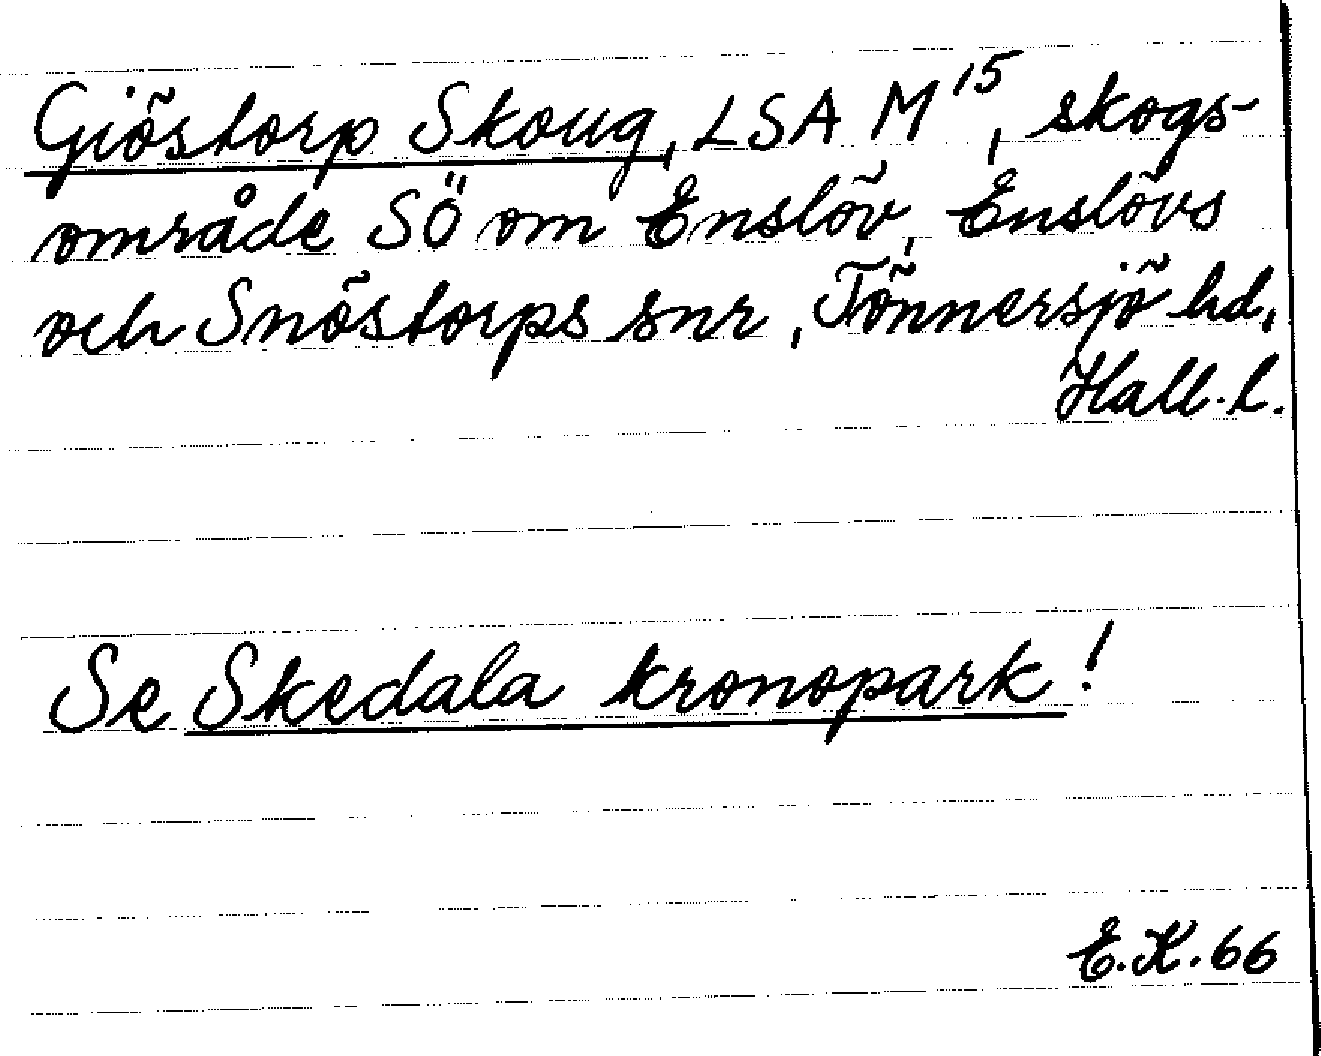 Giöstorp Skoug, LSA M¹⁵, skogs-
område SÖ om Enslöv, Enslövs
och Snöstorps snr, Tönnersjö hd,
Hall. l.
Se Skedala kronopark!
E.K. 66